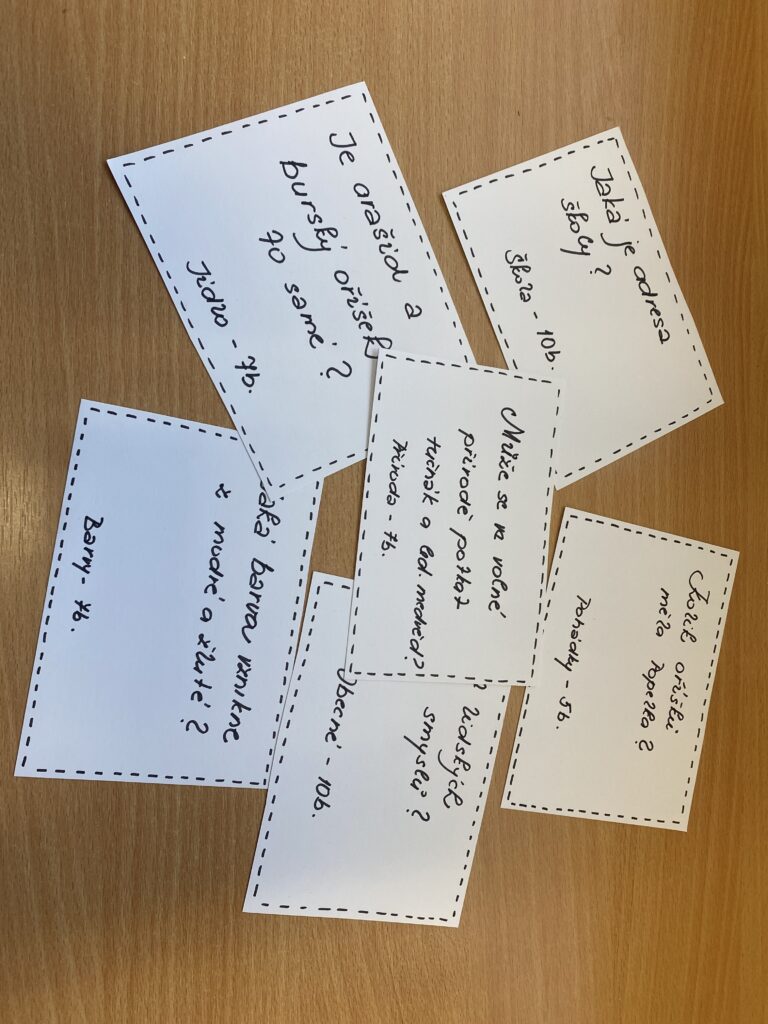 Jaká je adresa
školy?
škola - 10b.
Je arašíd a
burský oříšek
to samé?
Jídlo - 7b.
Může se ve volné
přírodě potkat
tučňák a led. medvěd?
Příroda - 7b.
Kolik oříšků
měla Popelka?
Pohádky - 5b.
barva vznikne
z modré a žluté?
Barvy - 7b.
lidských
smyslů?
Obecné - 10b.